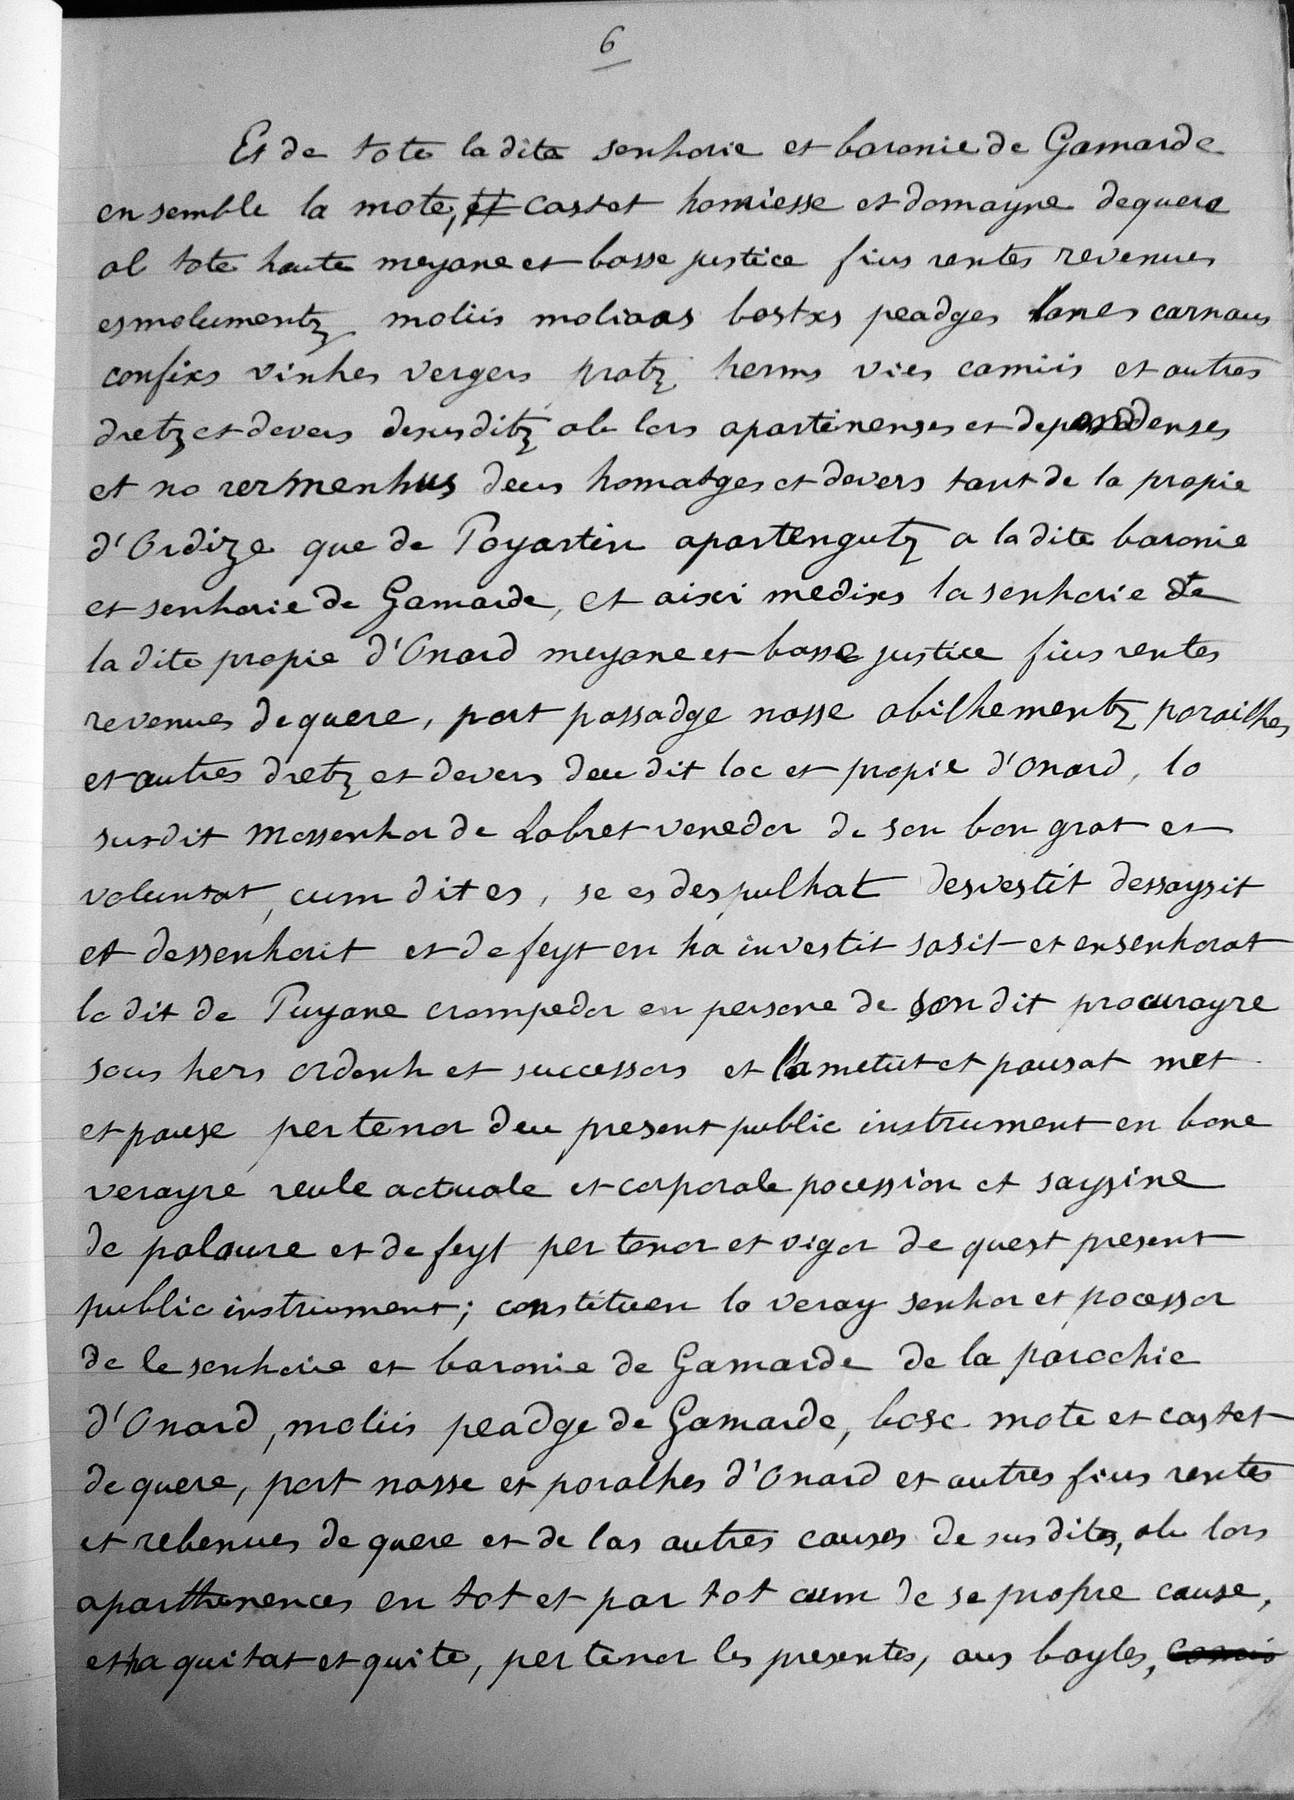 6
Et de tote la dite senhorie et baronie de Gamarde
ensemble la mote, et castet homiesse et domayne dequere
ab tote haute meyane et basse justice fius rentes revenues
esmolumentz moliis moliaas bostxs peadges lanes carnaus
confixs vinhes vergers pratz herms vies camiis et autres
dretz et devers desusditz ab lors apartinenses et dependenses
et no rermenhus deus homatges et devers tant de la propie
d'Ordize que de Poyartin apartengutz a la dite baronie
et senhorie de Gamarde, et aixi medixs la senhorie de
la dite propie d'Onard meyane et basse justice fius rentes
revenues dequere, port passadge nasse abilhementz parailhes
et autres dretz et devers deu dit loc et propie d'Onard, lo
susdit Mossenhor de Labret venedor de son bon grat et
voluntat, cum dit es, se es despulhat desvestit dessaysit
et dessenhorit et de feyt en ha investit sasit et ensenhorat
lo dit de Puyane crompedor en persone de son dit procurayre
sous hers ordenh et successors et l'a metut et pausat met
et pause per tenor deu present public instrument en bone
verayre reule actuale et corporale pocession et saysine
de palaure et de feyt per tenor et vigor de quest present
public instrument; constituen lo veray senhor et pocessor
de le senhorie et baronie de Gamarde de la parochie
d'Onard, moliis peadge de Gamarde, bosc mote et castet
de quere, port nasse et paralhes d'Onard et autres fius rentes
et rebenues de quere et de las autres causes de susdites, ab lors
aparthenences en tot et par tot cum de se propre cause,
et ha quitat et quite, per tenor les presentes, aus bayles,